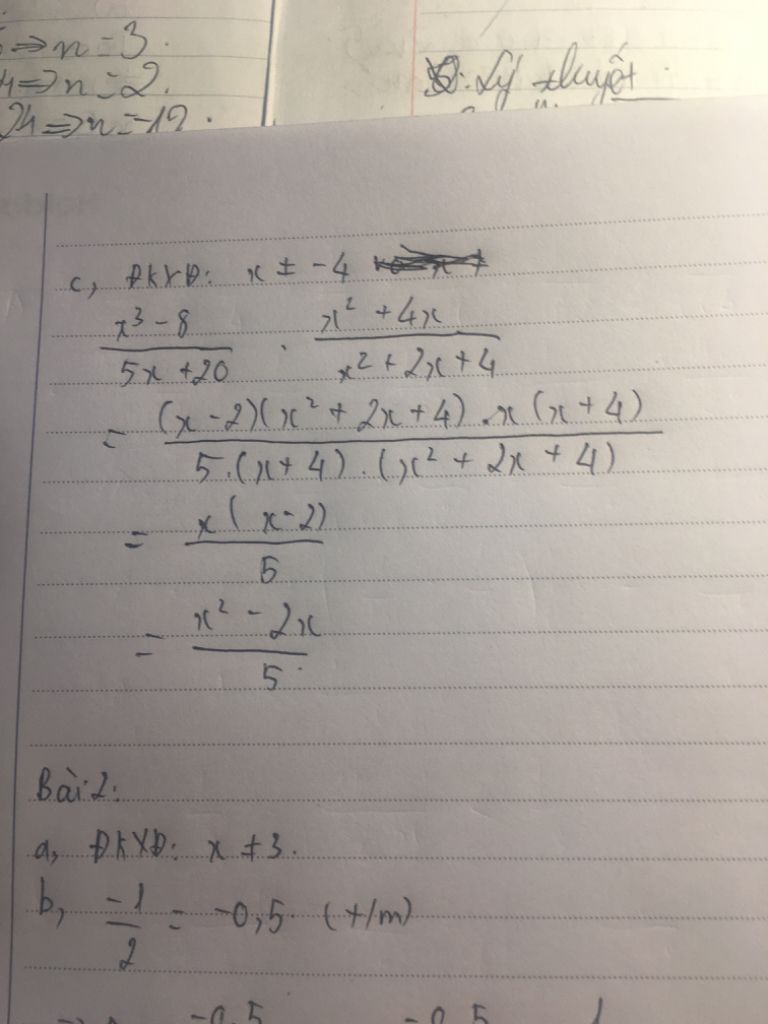 => n = 3.
=> n = 2.
24 => n = -12.
Lý thuyết
c, ĐKXĐ: x ≠ -4
x³ - 8 / 5x + 20 . x² + 4x / x² + 2x + 4
= (x - 2)(x² + 2x + 4) . x (x + 4) / 5.(x + 4) . (x² + 2x + 4)
= x ( x - 2) / 5
= x² - 2x / 5
Bài 2:
a, ĐKXĐ: x ≠ 3.
b, -1 / 2 = -0,5 (t/m)
-0,5 -0,5